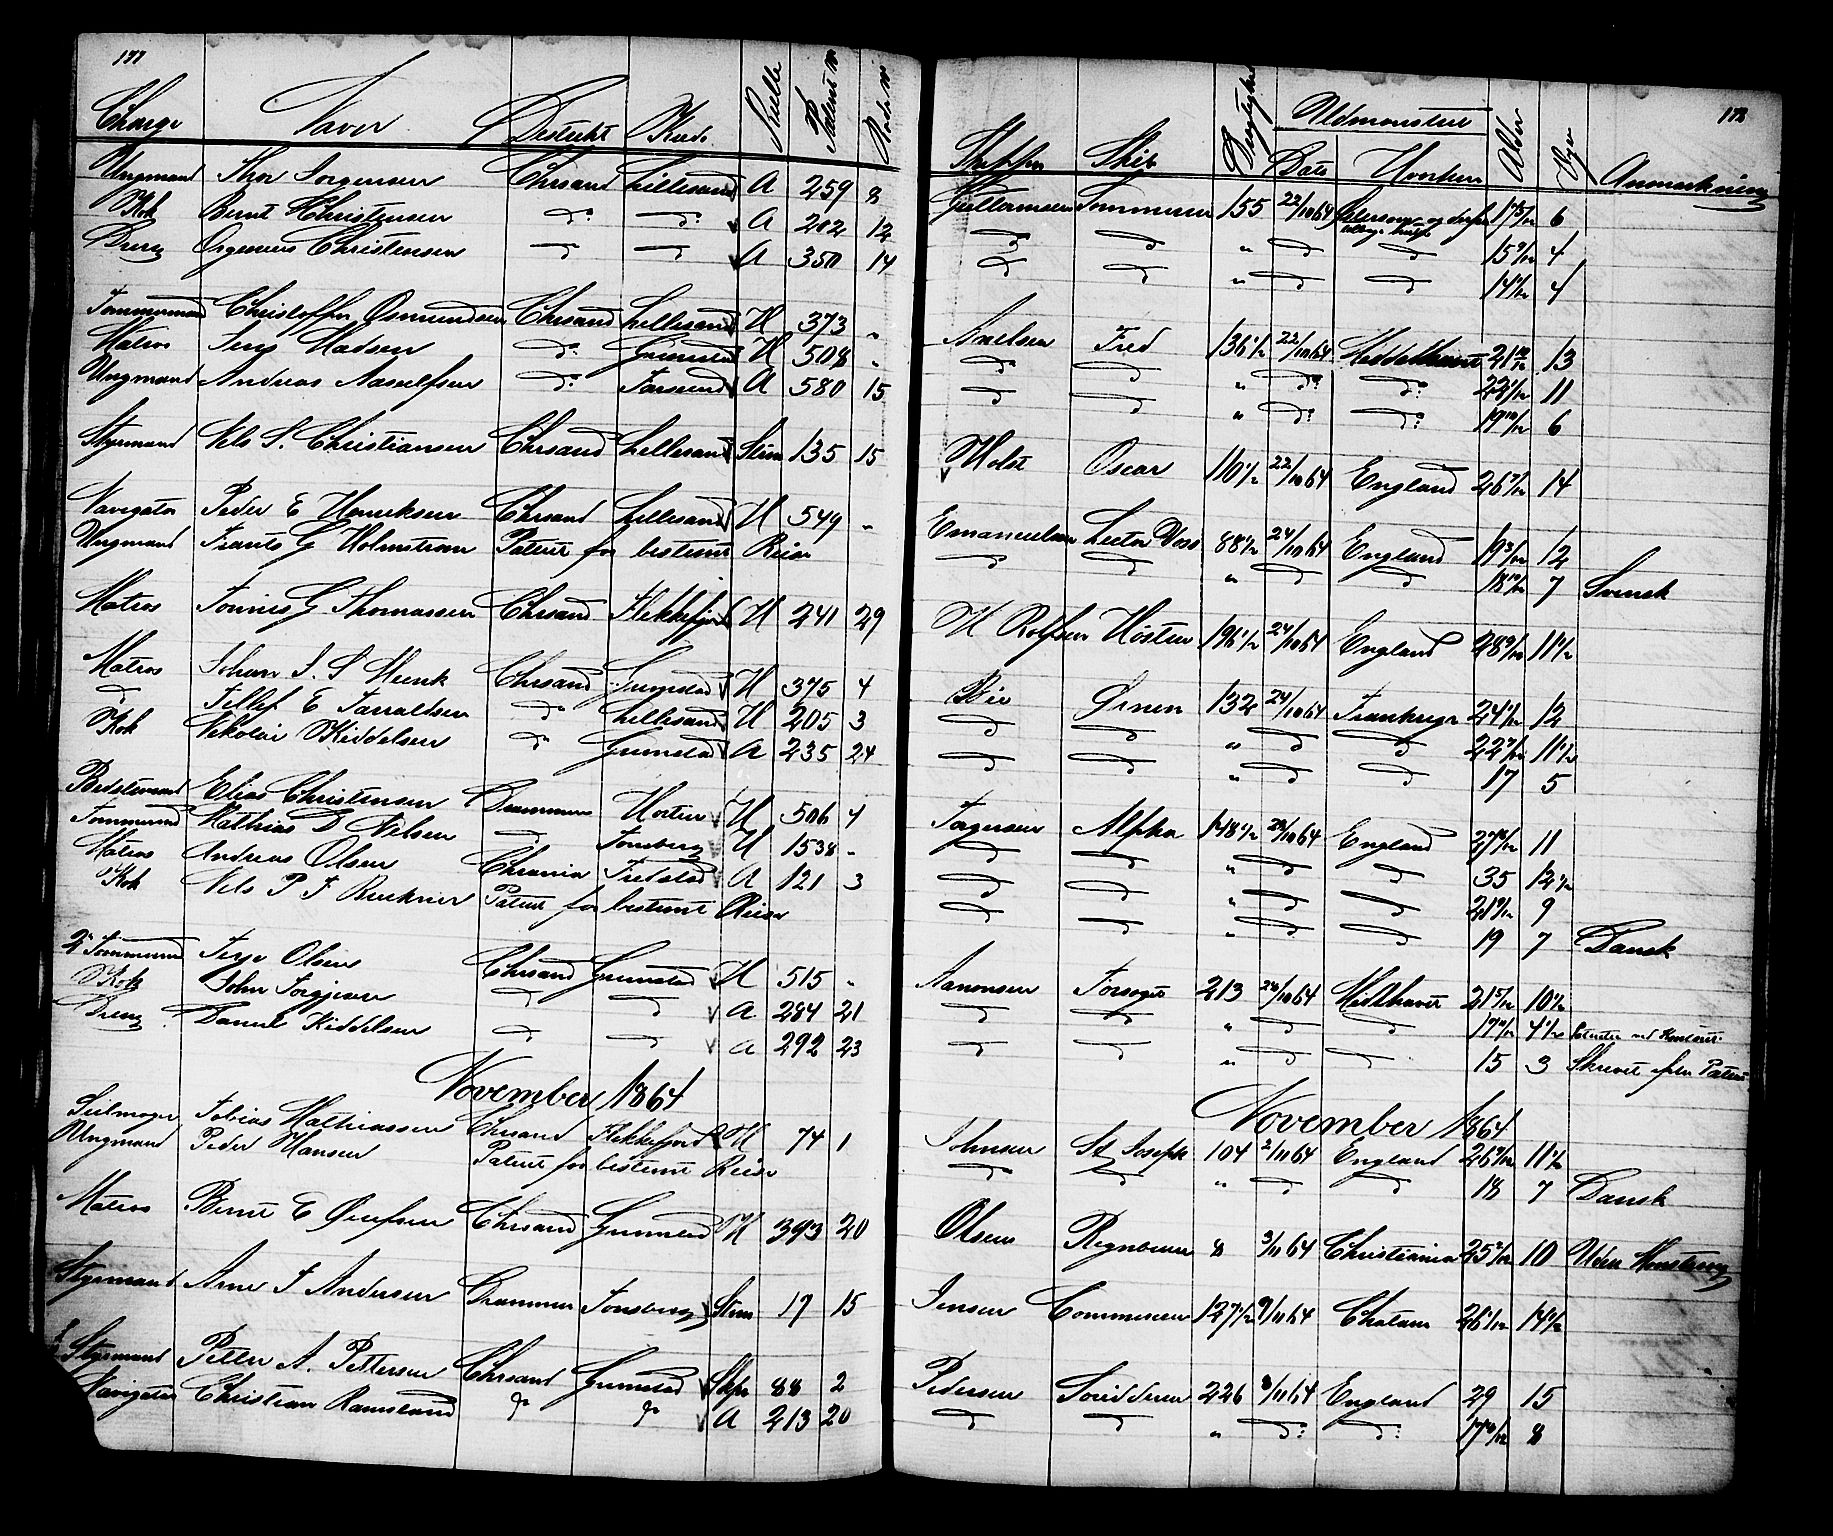 177
Charge Navn Distrikt Kreds Rulle Patent No Rode No
Ungmand Thor Jorgensen Chrsand Lillesand A 259 8
Kok Bernt Christensen do do A 202 12
Dreng Christensen do do A 350 14
Tømmermand Christoffer Osmundsen Chrsand Lillesand H 373 "
Matros Jens Madsen do Grimstad H 508 "
Ungmand Andreas Aanelfsen do Farsund A 580 15
Styrmand Nels S. Christiansen Chrsand Lillesand Stirm 135 15
Navigatør Peder E Henriksen Chrsand Lillesand H 549 "
Ungmand Frants G Holmstrøm Patent for bestemt Reise
Matros Tønnes G Thomassen Chrsand Flekkefjord H 241 29
Matros Johan J. S Munk Chrsand Grimstad H 375 4
do Tellef E Tarraldsen do Lillesand H 205 3
Kok Nikolai Kiddelsen do Grimstad A 235 24
Bedstemand Elias Christensen Drammen Horten H 506 4
Tømmermand Mathias D Nilsen do Tønsberg H 1538 "
Matros Andreas Olsen Chrania Fredstad A 121 3
Kok Nels P. F Buckner Patent for bestemt Reise
2. Tømmermand Terje Olsen Chrsand Grimstad H 515 "
Kok John Torgjersen do do A 284 21
Dreng Daniel Kiddelsen do do A 292 23
November 1864
Seilmager Tobias Mathiassen Chrsand Flekkefjord H 74 1
Ungmand Peder Hansen Patent for bestemt Reise
Matros Bernt E Olufsen Chrsand Grimstad H 393 20
Styrmand Arne T Andersen Drammen Tønsberg Stirm 17 15
Styrmand Petter A. Pettersen Chrsand Grimstad Skpr 88 2
Navigatør Christian Ramsland do do A 213 20
178
Skipper Skib Drægtighed Udmønstret Alder Hyre Anmærkning
Date Hvorhen
Guttormsen Tommesen 155 22/10 64 17 5/12 6
do do " do do 15 9/12 4
do do " do do 14 4
Axelsen Fred 136 1/2 22/10 64 Middelhavet 21 13
do do " do do 22 11
do do " do do 19 10/12 6
Holst Oscar 110 1/2 22/10 64 England 26 14
Emanuelsen Lector Voss 88 1/2 24/10 64 England 19 12
do do " do do 18 7 Svensk
H Rolfsen Høsten 196 1/2 24/10 64 England 28 11 1/2
Bie Ørnen 132 24/10 64 Frankrige 24 12
do do " do do 22 11 1/2
do do " do do 17 5
Torgersen Alpha 148 1/2 64 England 27 11
do do " do do 35 12 1/2
do do " do do 21 9
do do " do do 19 7 Dansk
Aanonsen Forsøget 213 64 Middhavet 21 10 1/2
do do " do do 17 4 1/2
do do " do do 15 3 Skrevet efter Patent
November 1864
Johnsen St Joseph 104 2/11 64 England 26 11 1/2
do do " do do 18 7 Dansk
Olsen Regnbuen 8 3/11 64 Christiania 25 10 Uden Mønstring
Jensen Commissen 127 1/2 9/11 64 Chatam 26 14 1/2
Pedersen 226 /11 64 England 29 15
do do " do do 17 8